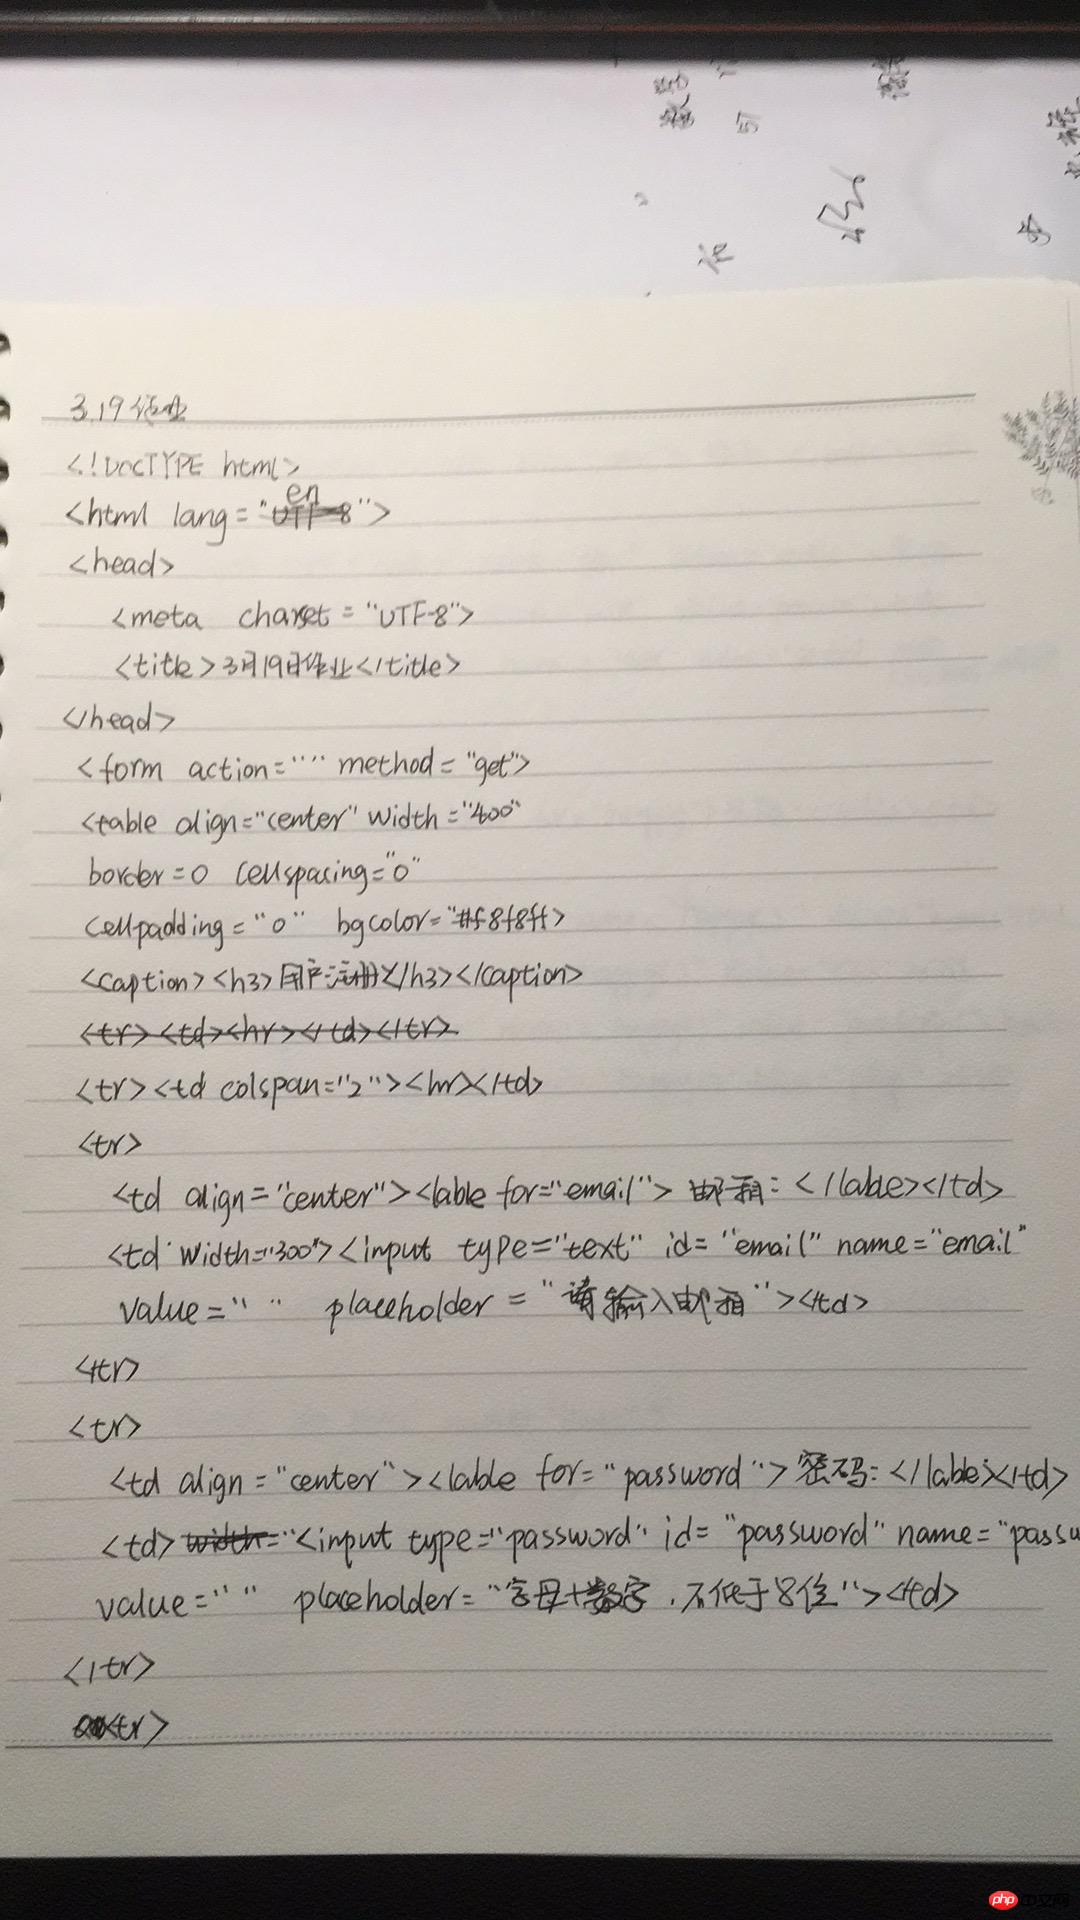 3.19作业
<!DOCTYPE html>
<html lang="en">
<head>
<meta charset="UTF-8">
<title>3月19日作业</title>
</head>
<form action="" method="get">
<table align="center" width="400"
border=0 cellspacing="0"
cellpadding="0" bgcolor="#f8f8ff>
<caption><h3>用户注册</h3></caption>
<tr><td><hr></td></tr>
<tr><td colspan="2"><hr></td>
<tr>
<td align="center"><lable for="email">邮箱:</lable></td>
<td width="300"><input type="text" id="email" name="email"
value=" " placeholder="请输入邮箱"></td>
</tr>
<tr>
<td align="center"><lable for="password">密码:</lable></td>
<td> width="<input type="password" id="password" name="passw
value=" " placeholder="字母+数字,不低于8位"></td>
</tr>
<tr>
php中文网